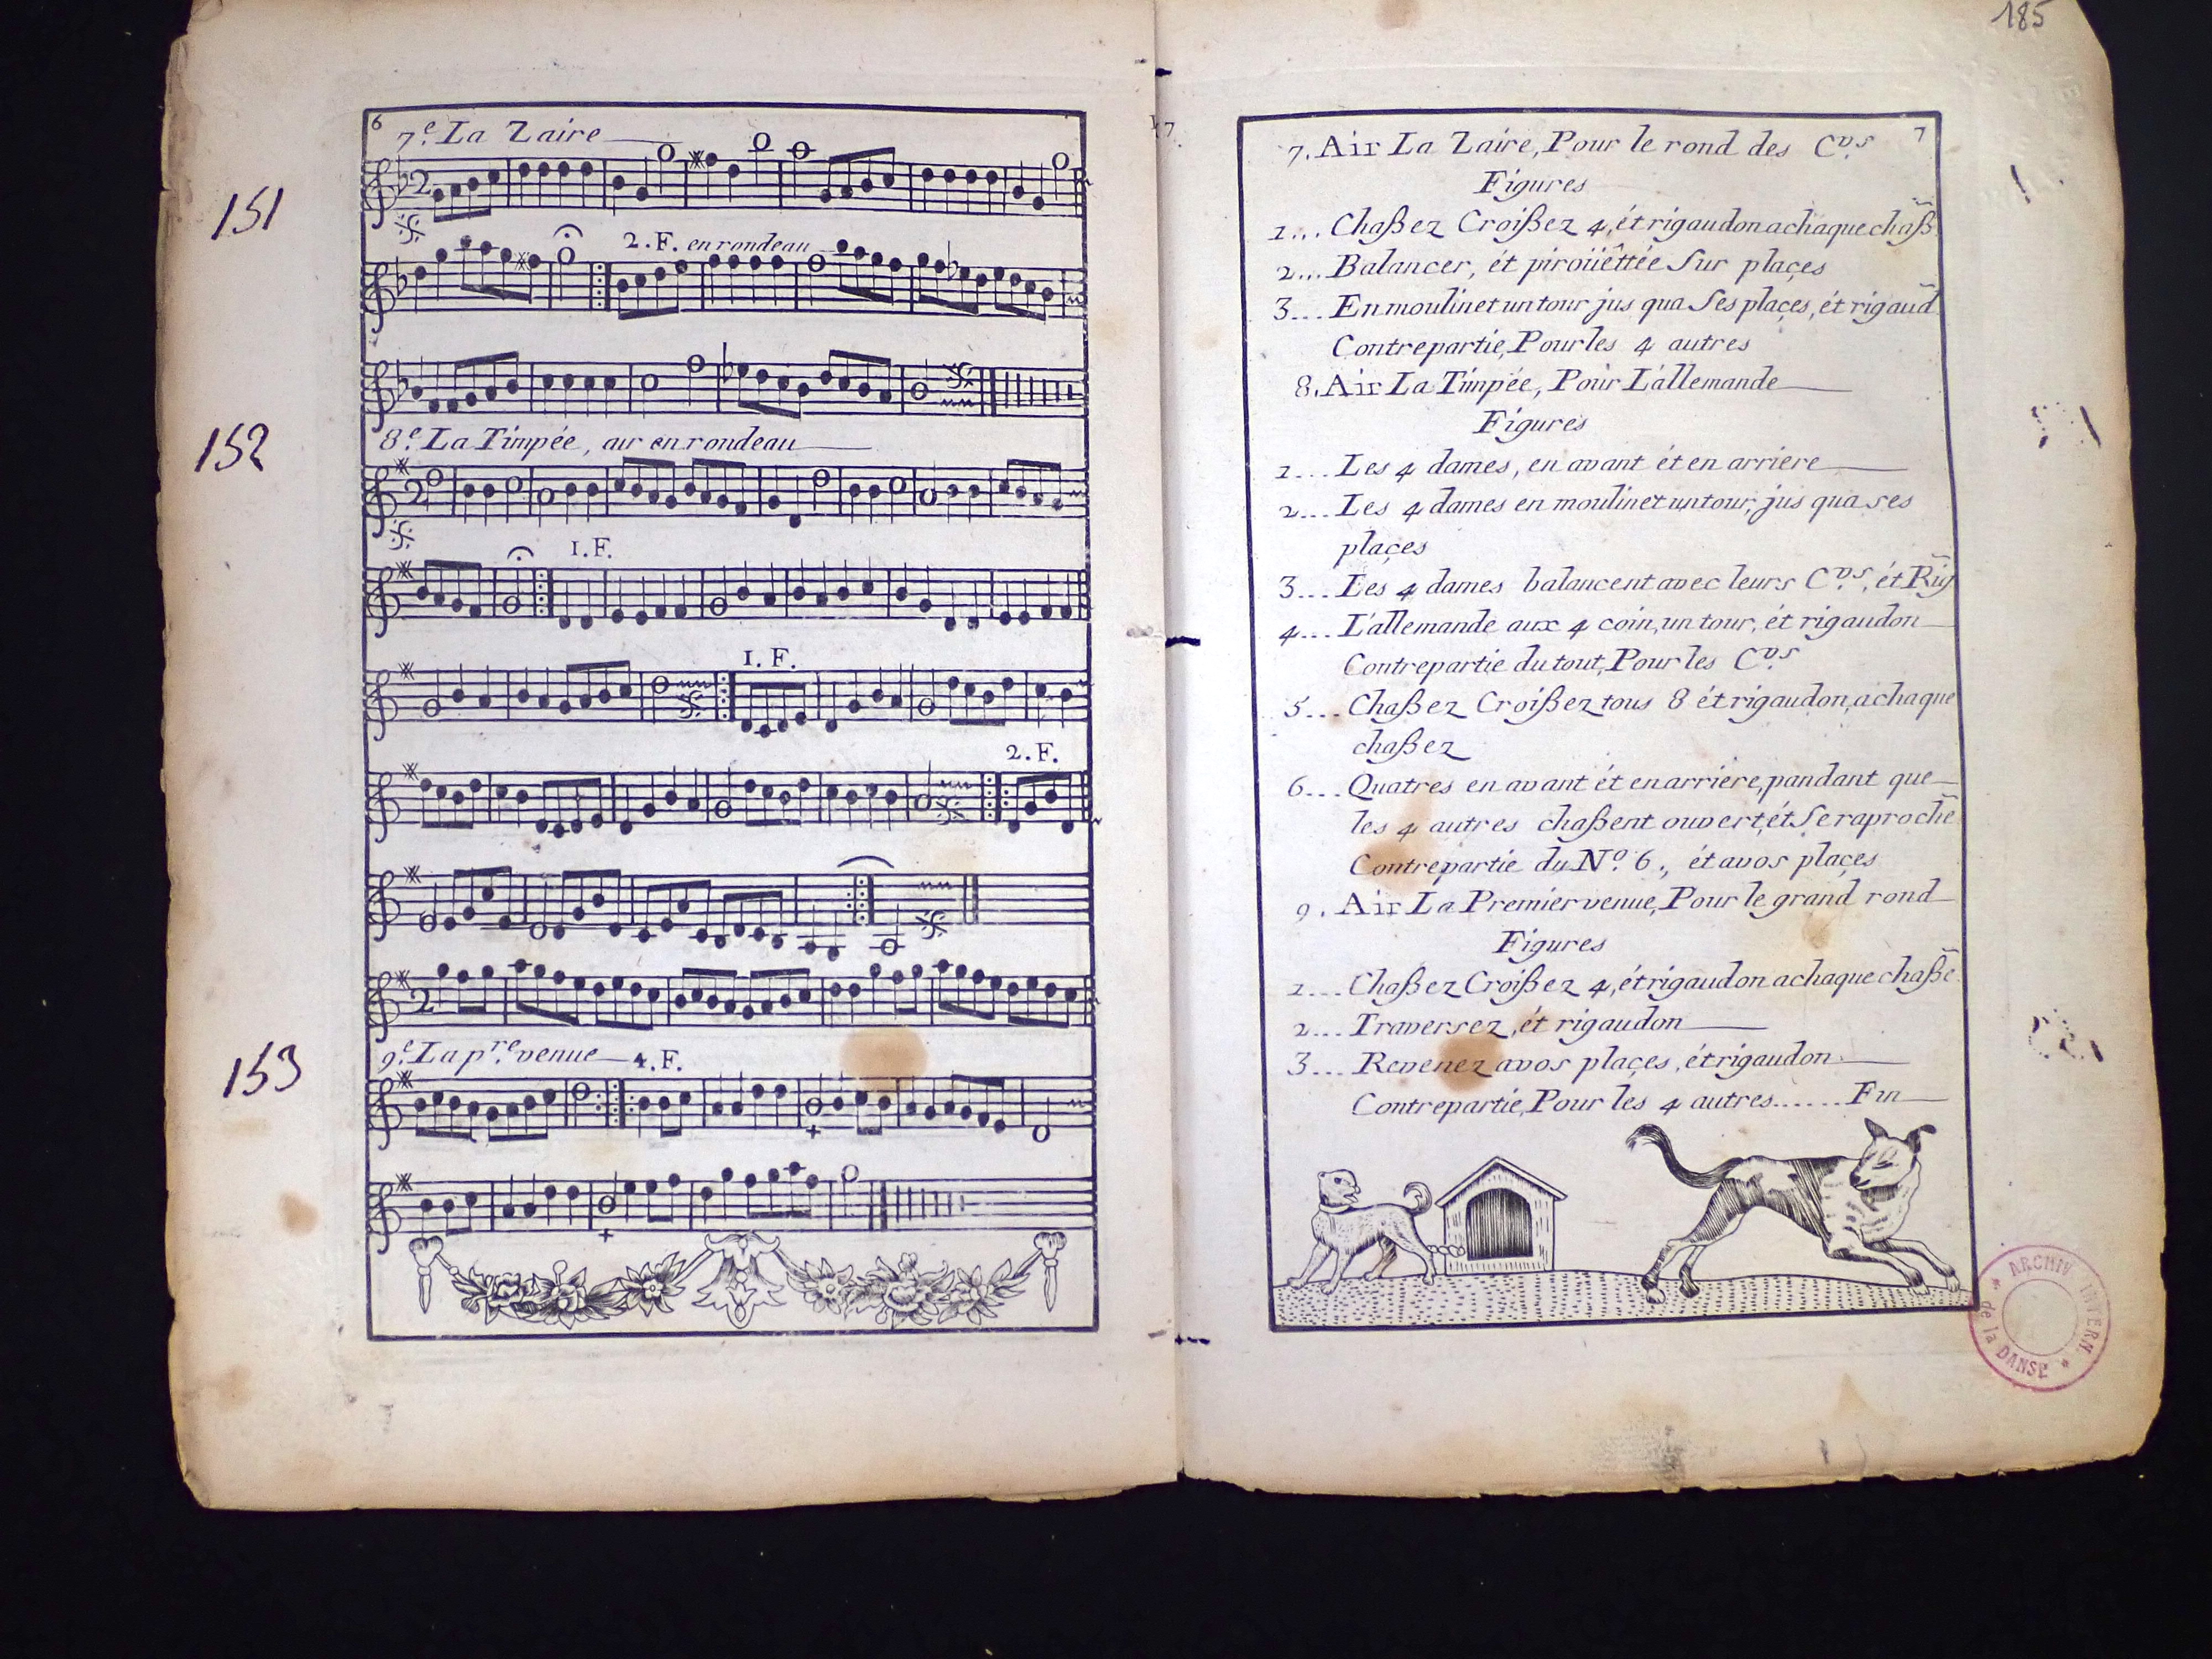 6
7.e La Zaire
151
2. F. en rondeau
8.e La Timpée, air en rondeau
152
1. F.
1. F.
2. F.
9.e La p.re venue 4. F.
153
185
7
7. Air La Zaire, Pour le rond des C.vs
Figures
1... Chaßez Croißez 4, ét rigaudon a chaque chaß
2... Balancer, ét piroüêttée Sur plaçes
3... En moulinet un tour jus qua Ses plaçes, ét rigaud
Contrepartie, Pour les 4 autres
8. Air La Timpée, Pour L'allemande
Figures
1... Les 4 dames, en avant ét en arriere
2... Les 4 dames en moulinet un tour, jus qua ses
plaçes
3... Les 4 dames balancent avec leurs C.vs, ét Rig
4... L'allemande aux 4 coin, un tour, ét rigaudon
Contrepartie du tout, Pour les C.vs
5... Chaßez Croißez tous 8 ét rigaudon, a chaque
chaßez
6... Quatres en avant ét en arriére, pandant que
les 4 autres chaßent ouvert, ét Se raproche
Contrepartie du N.o 6., ét a vos plaçes
9. Air La Premier venue, Pour le grand rond
Figures
1... Chaßez Croißez 4, ét rigaudon a chaque chaße
2... Traversez, ét rigaudon
3... Revenez a vos plaçes, ét rigaudon
Contrepartie, Pour les 4 autres...... Fin
ARCHIV INTERN
de la DANSE